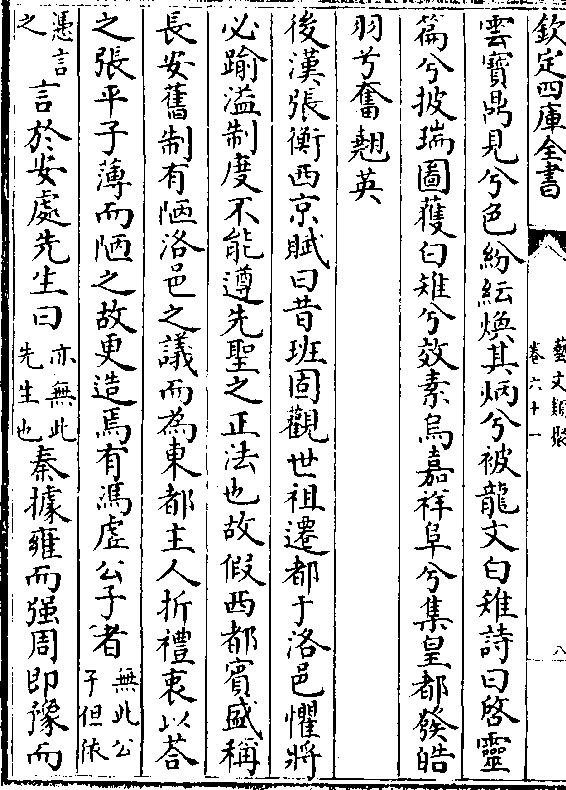 欽定四庫全書
藝文類聚
卷六十一
八
雲寶鼎見兮色紛紜煥其炳兮被龍文白雉詩曰啓靈
篇兮披瑞圖獲白雉兮效素烏嘉祥阜兮集皇都發皓
羽兮奮翹英
後漢張衡西京賦曰昔班固觀世祖遷都于洛邑懼將
必踰溢制度不能遵先聖之正法也故假西都賓盛稱
長安舊制有陋洛邑之議而為東都主人折禮衷以荅
之張平子薄而陋之故更造焉有馮虛公子者無此公
子但依
之憑言
言於安處先生曰亦無此
先生也
秦據雍而强周即豫而